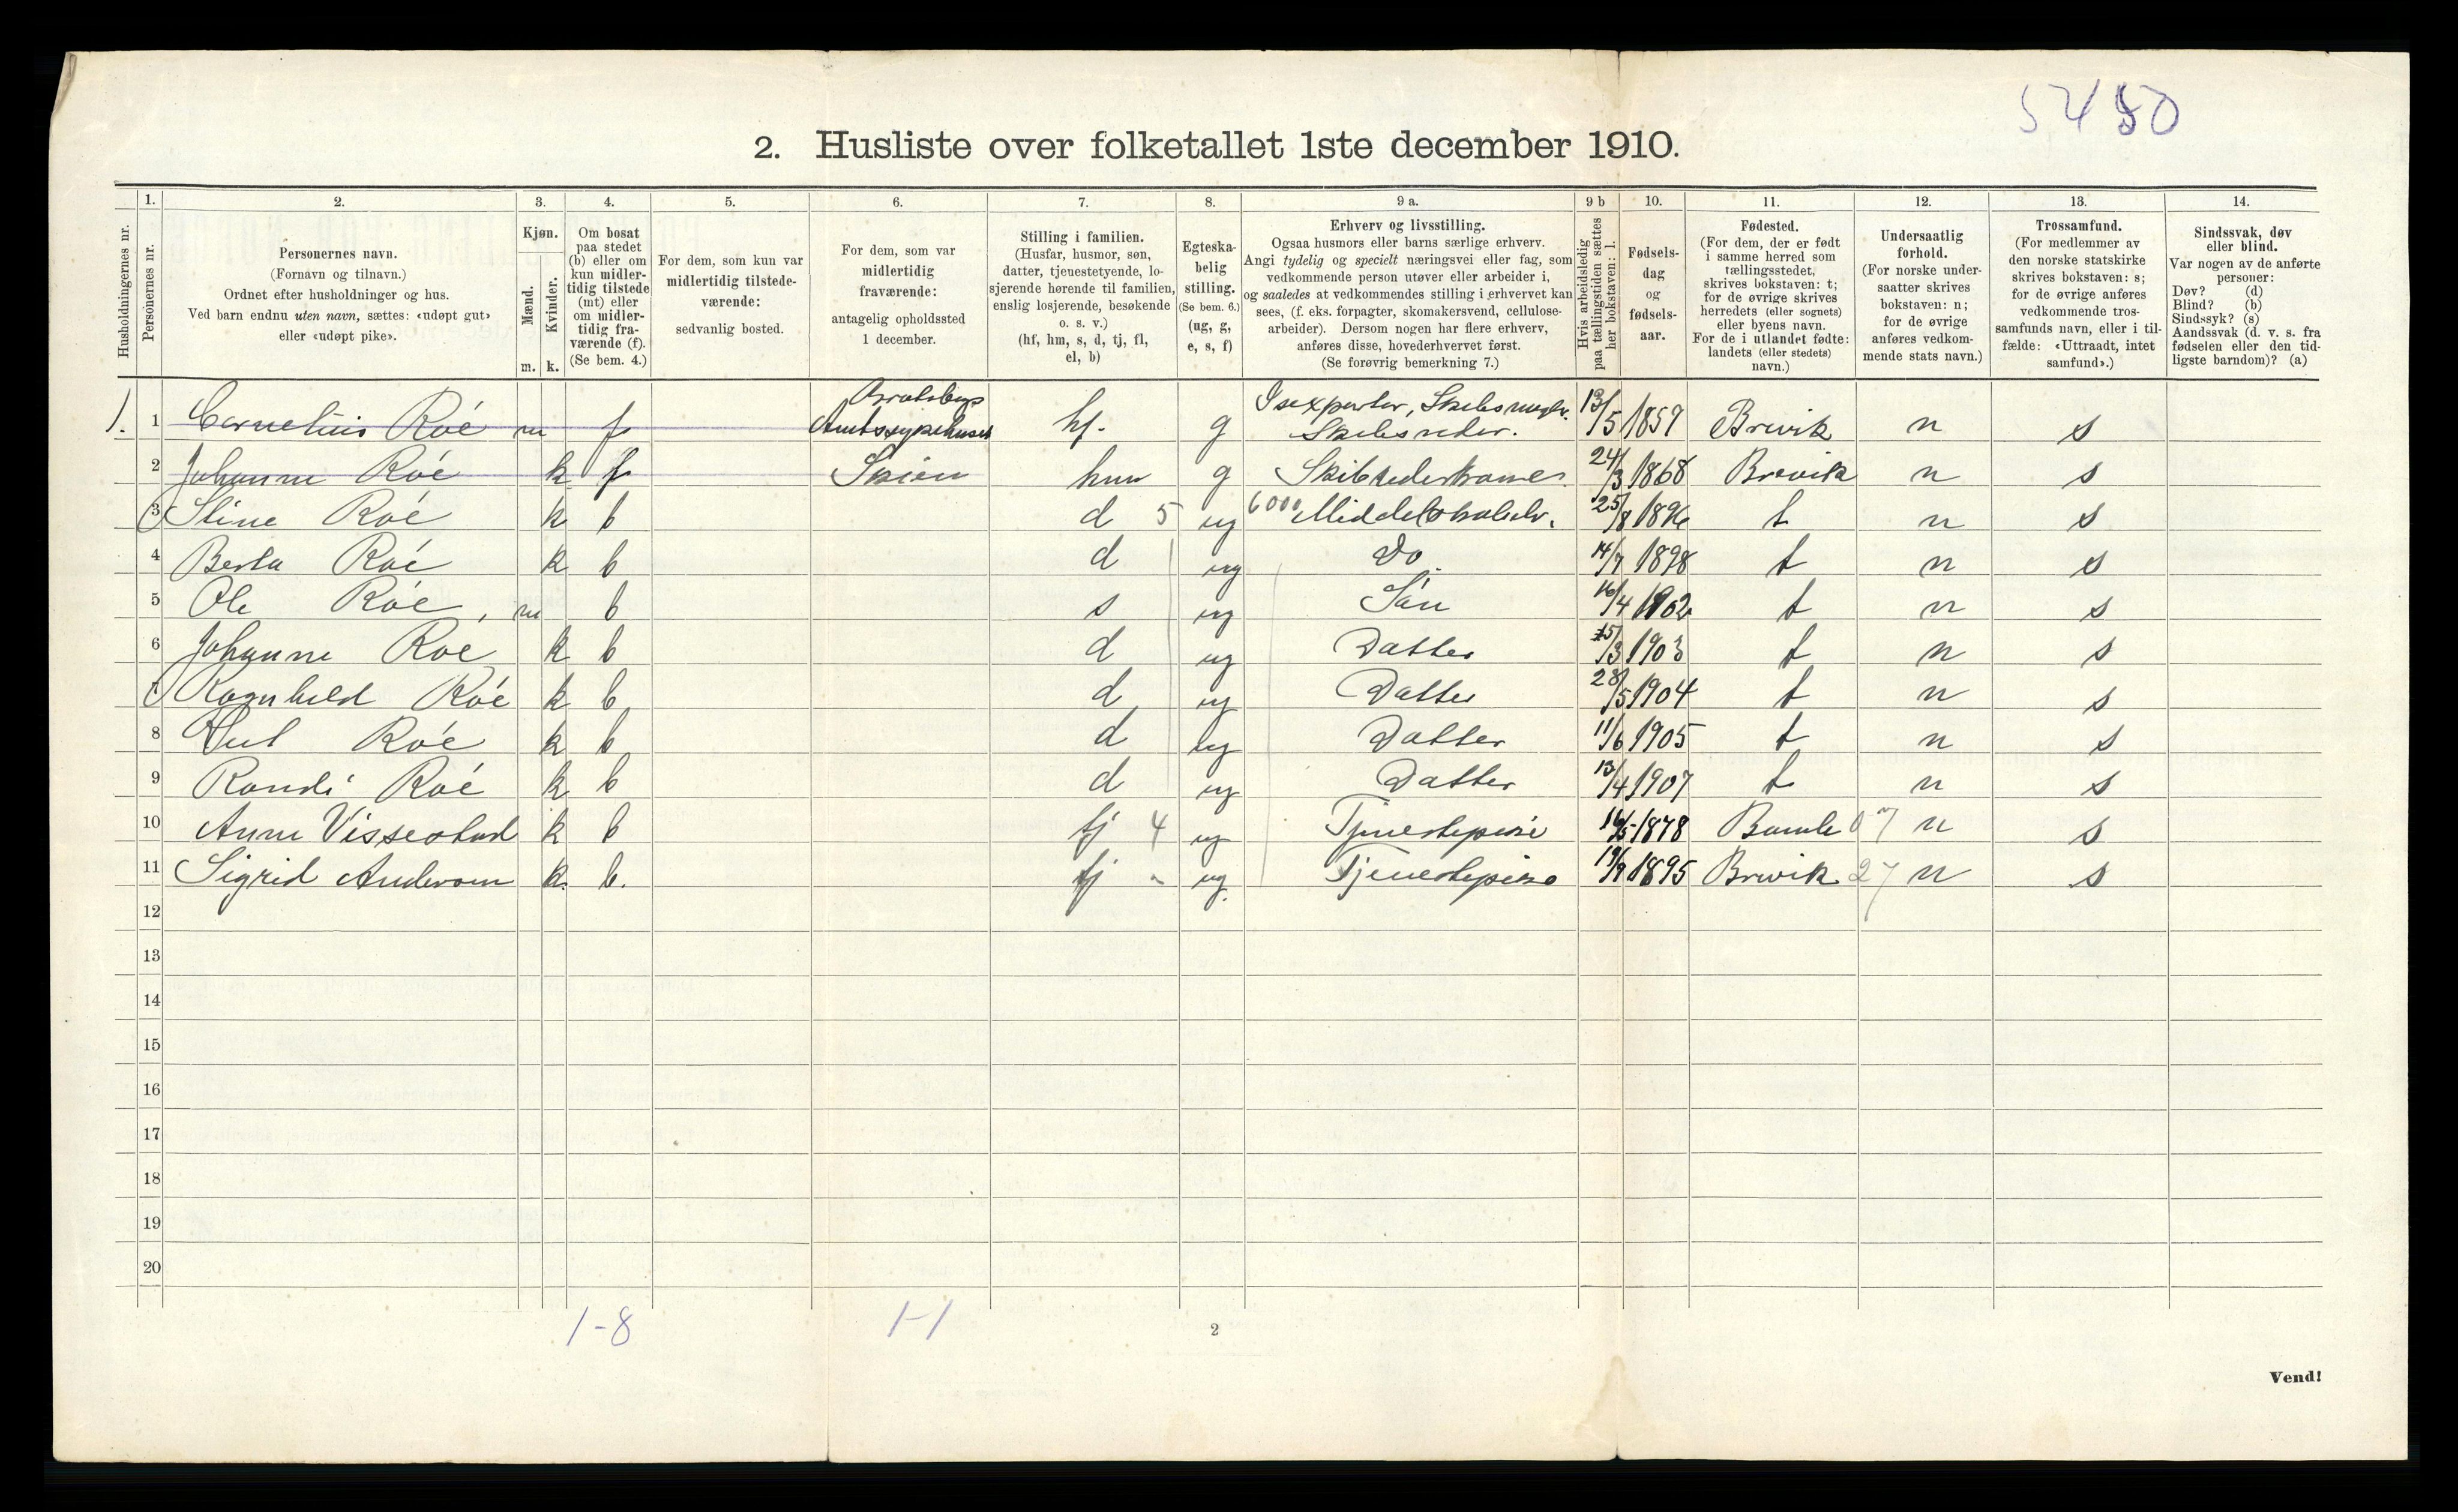 5480
2. Husliste over folketallet 1ste december 1910.
Husholdningernes nr.
1. Personernes nr.
2. Personernes navn.
(Fornavn og tilnavn.)
Ordnet efter husholdninger og hus.
Ved barn endnu uten navn, sættes: «udøpt gut»
eller «udøpt pike».
3. Kjøn.
Mænd. m.
Kvinder. k.
4. Om bosat
paa stedet
(b) eller om
kun midler-
tidig tilstede
(mt) eller
om midler-
tidig fra-
værende (f).
(Se bem. 4.)
5. For dem, som kun var
midlertidig tilstede-
værende:
sedvanlig bosted.
6. For dem, som var
midlertidig
fraværende:
antagelig opholdssted
1 december.
7. Stilling i familien.
(Husfar, husmor, søn,
datter, tjenestetyende, lo-
sjerende hørende til familien,
enslig losjerende, besøkende
o. s. v.)
(hf, hm, s, d, tj, fl,
el, b)
8. Egteska-
belig
stilling.
(Se bem. 6.)
(ug, g,
e, s, f)
9 a. Erhverv og livsstilling.
Ogsaa husmors eller barns særlige erhverv.
Angi tydelig og specielt næringsvei eller fag, som
vedkommende person utøver eller arbeider i,
og saaledes at vedkommendes stilling i erhvervet kan
sees, (f. eks. forpagter, skomakersvend, cellulose-
arbeider). Dersom nogen har flere erhverv,
anføres disse, hovederhvervet først.
(Se forøvrig bemerkning 7.)
9 b Hvis arbeidsledig
paa tællingstiden sættes
her bokstaven: l.
10. Fødsels-
dag
og
fødsels-
aar.
11. Fødested.
(For dem, der er født
i samme herred som
tællingsstedet,
skrives bokstaven: t;
for de øvrige skrives
herredets (eller sognets)
eller byens navn.
For de i utlandet fødte:
landets (eller stedets)
navn.)
12. Undersaatlig
forhold.
(For norske under-
saatter skrives
bokstaven: n;
for de øvrige
anføres vedkom-
mende stats navn.)
13. Trossamfund.
(For medlemmer av
den norske statskirke
skrives bokstaven: s;
for de øvrige anføres
vedkommende tros-
samfunds navn, eller i til-
fælde: «Uttraadt, intet
samfund».)
14. Sindssvak, døv
eller blind.
Var nogen av de anførte
personer:
Døv? (d)
Blind? (b)
Sindssyk? (s)
Aandssvak (d. v. s. fra
fødselen eller den tid-
ligste barndom)? (a)
1. 1 Cornelius Roé m f Amtssygehuset hf. g Isexportør, Skibsmegler. Skibsreder. 13/5 1857 Brevik n s
2 Johanne Roé k f Skien hm g 24/3 1868 Brevik n s
3 Stine Roé k b d 5 ug 6000 Middelskoleelv. 25/8 1896 t n s
4 Berta Roé k b d ug Do. 14/7 1898 t n s
5 Ole Roé, m b s ug Søn 16/4 1902 t n s
6 Johanne Roé k b d ug Datter 15/3 1903 t n s
7 Ragnhild Roé k b d ug Datter 28/5 1904 t n s
8 Roé k b d ug Datter 11/6 1905 t n s
9 Randi Roé k b d ug Datter 13/4 1907 t n s
10 Anne Vissestad k b tj 4 ug Tjenestepike 16/5 1878 Bamle 07 n s
11 Sigrid Andersen k. b. tj - ug. Tjenestepike 19/9 1895 Brevik 27 n s
12
13
14
15
16
17
18
19
20
1-8 1-1
2
Vend!